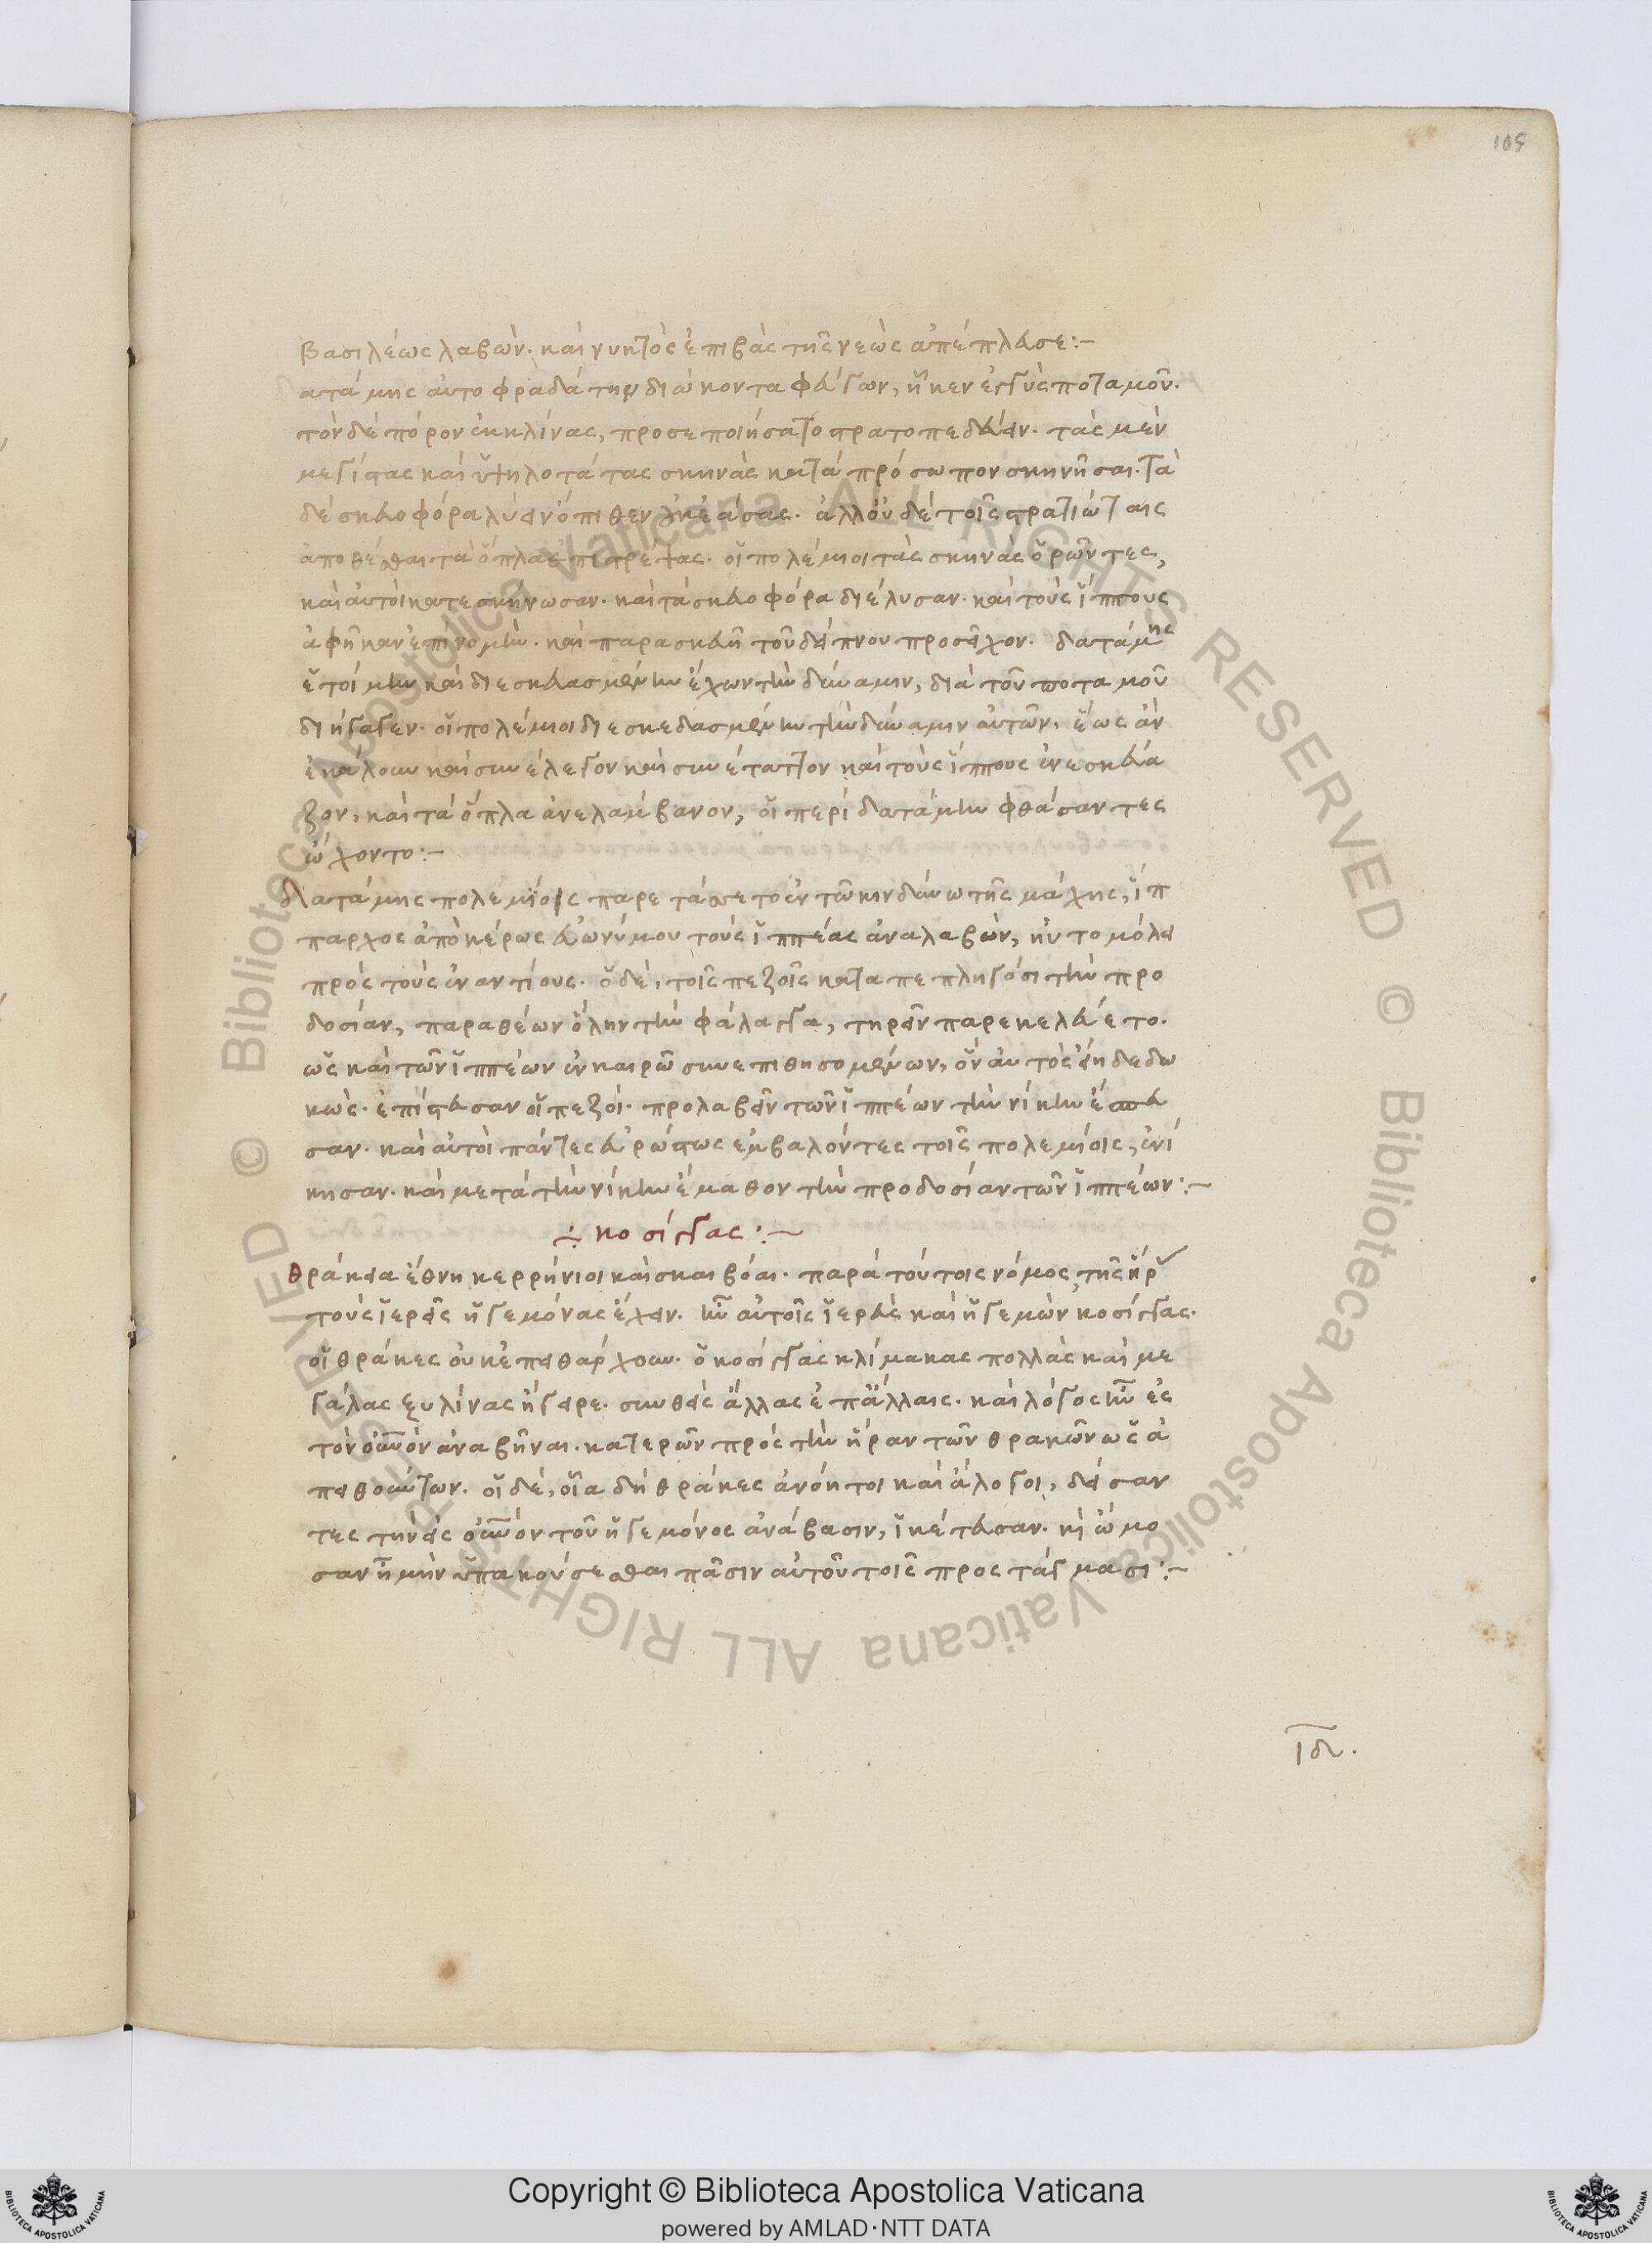 105
βασιλέως λαβὼν. καὶ νυκτὸς ἐπιβὰς τῆς νεὼς ἀπέπλευσε:~
δατάμης αὐτοφραδάτην διώκοντα φεύγων, ἧκεν ἐγγὺς ποταμοῦ.
τὸν δὲ πόρον ἐκκλίνας, προσεποιήσατο στρατοπεδεύειν. τὰς μὲν
μεγίστας καὶ ὑψηλοτάτας σκηνὰς κατὰ πρόσωπον σκηνῆσαι. τὰ
δὲ σκευοφόρα λύειν ὄπισθεν ἐάσας. ἀλλ' οὐδὲ τοῖς στρατιώταις
ἀποθέσθαι τὰ ὅπλα ἐπιτρέψας. οἱ πολέμιοι τὰς σκηνὰς ὁρῶντες,
καὶ αὐτοὶ κατεσκήνωσαν. καὶ τὰ σκευοφόρα διέλυσαν. καὶ τοὺς ἵππους
ἀφῆκαν ἐπὶ νομὴν. καὶ παρασκευῇ τοῦ δείπνου προσεῖχον. δατάμης
ἑτοίμην καὶ διεσκευασμένην ἔχων τὴν δύναμιν, διὰ τοῦ ποταμοῦ
διήγαγεν. οἱ πολέμιοι διεσκεδασμένην τὴν δύναμιν αὐτῶν, ἕως ἀν
ἐκάλουν καὶ συνέλεγον καὶ συνέταττον καὶ τοὺς ἵππους ἐνεσκεύα
ζον, καὶ τὰ ὅπλα ἀνελάμβανον, οἱ περὶ δατάμην φθάσαντες
ᾤχοντο:~
Δατάμης πολεμίοις παρετάσσετο ἐν τῷ κινδύνω τῆς μάχης, ἵπ
παρχος ἀπὸ κέρως εὐωνύμου τοὺς ἱππέας ἀναλαβὼν, ηὐτομόλει
πρὸς τοὺς ἐναντίους. ὁ δὲ, τοῖς πεζοῖς καταπεπληγόσι τὴν προ
δοσίαν, παραθέων ὅλην τὴν φάλαγγα, τηρεῖν παρεκελεύετο.
ὡς καὶ τῶν ἱππέων ἐν καιρῶ συνεπιθησομένων, ὃν αὐτὸς εἴη δεδω
κὼς. ἐπίστευσαν οἱ πεζοὶ. προλαβεῖν τῶν ἱππέων τὴν νίκην ἔσπευ
σαν. καὶ αὐτοὶ πάντες εὐρώστως ἐμβαλόντες τοῖς πολεμίοις, ἐνί
κησαν. καὶ μετὰ τὴν νίκην ἔμαθον τὴν προδοσίαν τῶν ἱππέων:~
~: κοσίγγας:~
θράκεια ἔθνη κερρήνιοι καὶ σκαιβόαι. παρὰ τούτοις νόμος, τῆς ἥρ
τοὺς ἱερεῖς ἡγεμόνας ἔχειν. ἦν αὐτοῖς ἱερεὺς καὶ ἡγεμὼν κοσίγγας.
οἱ θράκες οὐκ ἐπειθάρχουν. ὁ κοσίγγας κλίμακας πολλὰς καὶ με
γάλας ξυλίνας ἤγειρε. συνθεὶς ἄλλας ἐπ' ἄλλαις. καὶ λόγος ἦν ἐς
τὸν οὐνὸν ἀναβῆναι. κατερῶν πρὸς τὴν ἥραν τῶν θρακῶν ὡς ἀ
πειθούντων. οἱ δὲ, οἷα δὴ θράκες ἀνόητοι καὶ ἄλογοι, δείσαν
τες τὴν εἰς οὐνὸν τοῦ ἡγεμόνος ἀνάβασιν, ἱκέτευσαν. κὶ ὤμο
σαν ἦ μὴν ὑπακούσεσθαι πᾶσιν αὐτοῦ τοῖς προστάγμασι:~
ιδ.
Copyright © Biblioteca Apostolica Vaticana
powered by AMLAD·NTT DATA